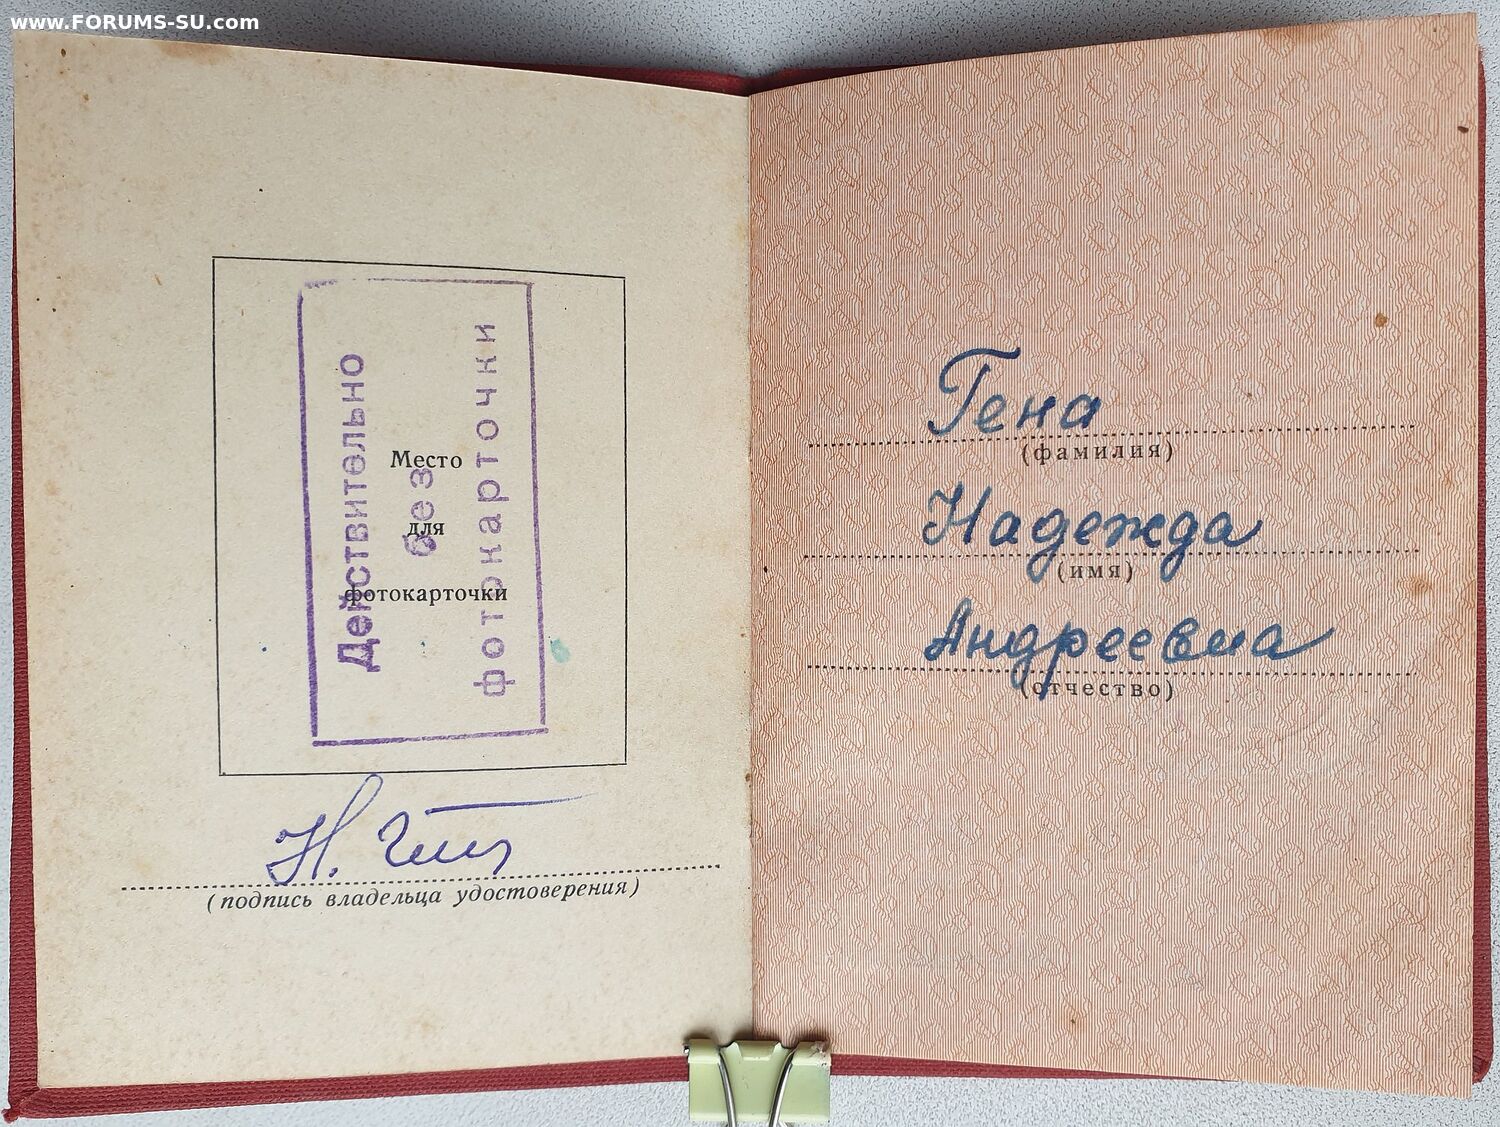 www.FORUMS-SU.com
Действительно
без
фотокарточки
Место
для
фотокарточки
Н.
(подпись владельца удостоверения)
Гена
(фамилия)
Надежда
(имя)
Андреевна
(отчество)